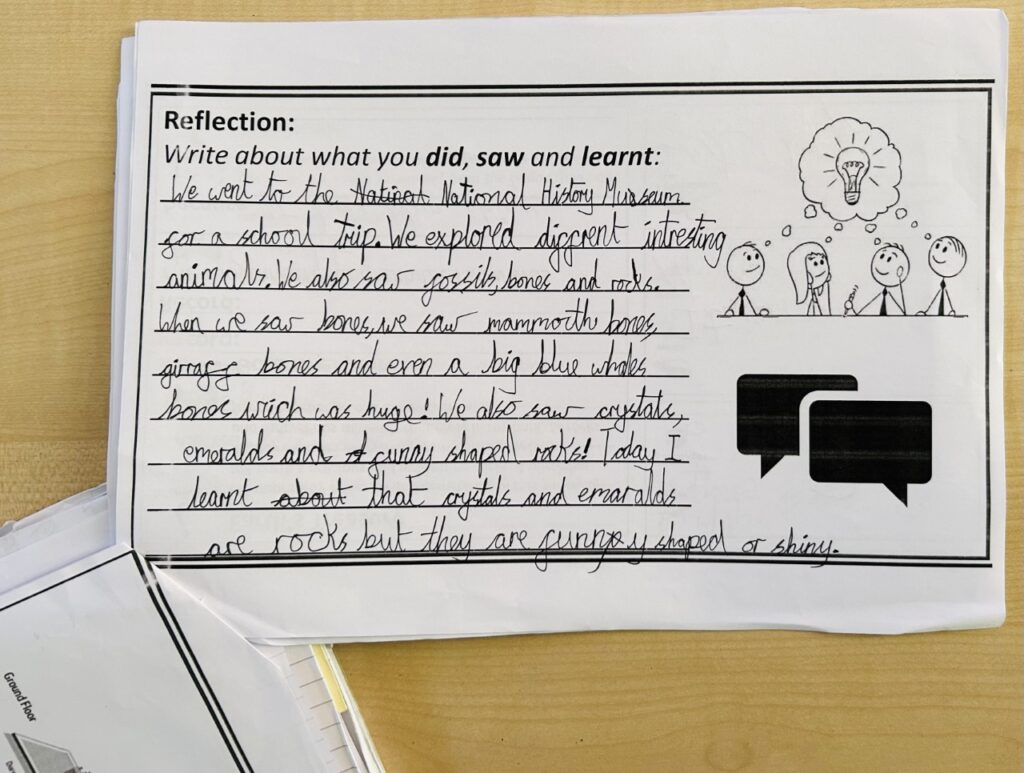 Reflection:
Write about what you did, saw and learnt:
We went to the Natinat National History Muaseum
for a school trip. We explored diffrent intresting
animals. We also saw fossils, bones and rocks.
When we saw bones, we saw mammoth bones,
girraffe bones and even a big blue whales
bones wich was huge! We also saw crystals,
emeralds and funny shaped rocks! Today I
learnt about that crystals and emaralds
are rocks but they are funny shaped or shiny.
Ground Floor